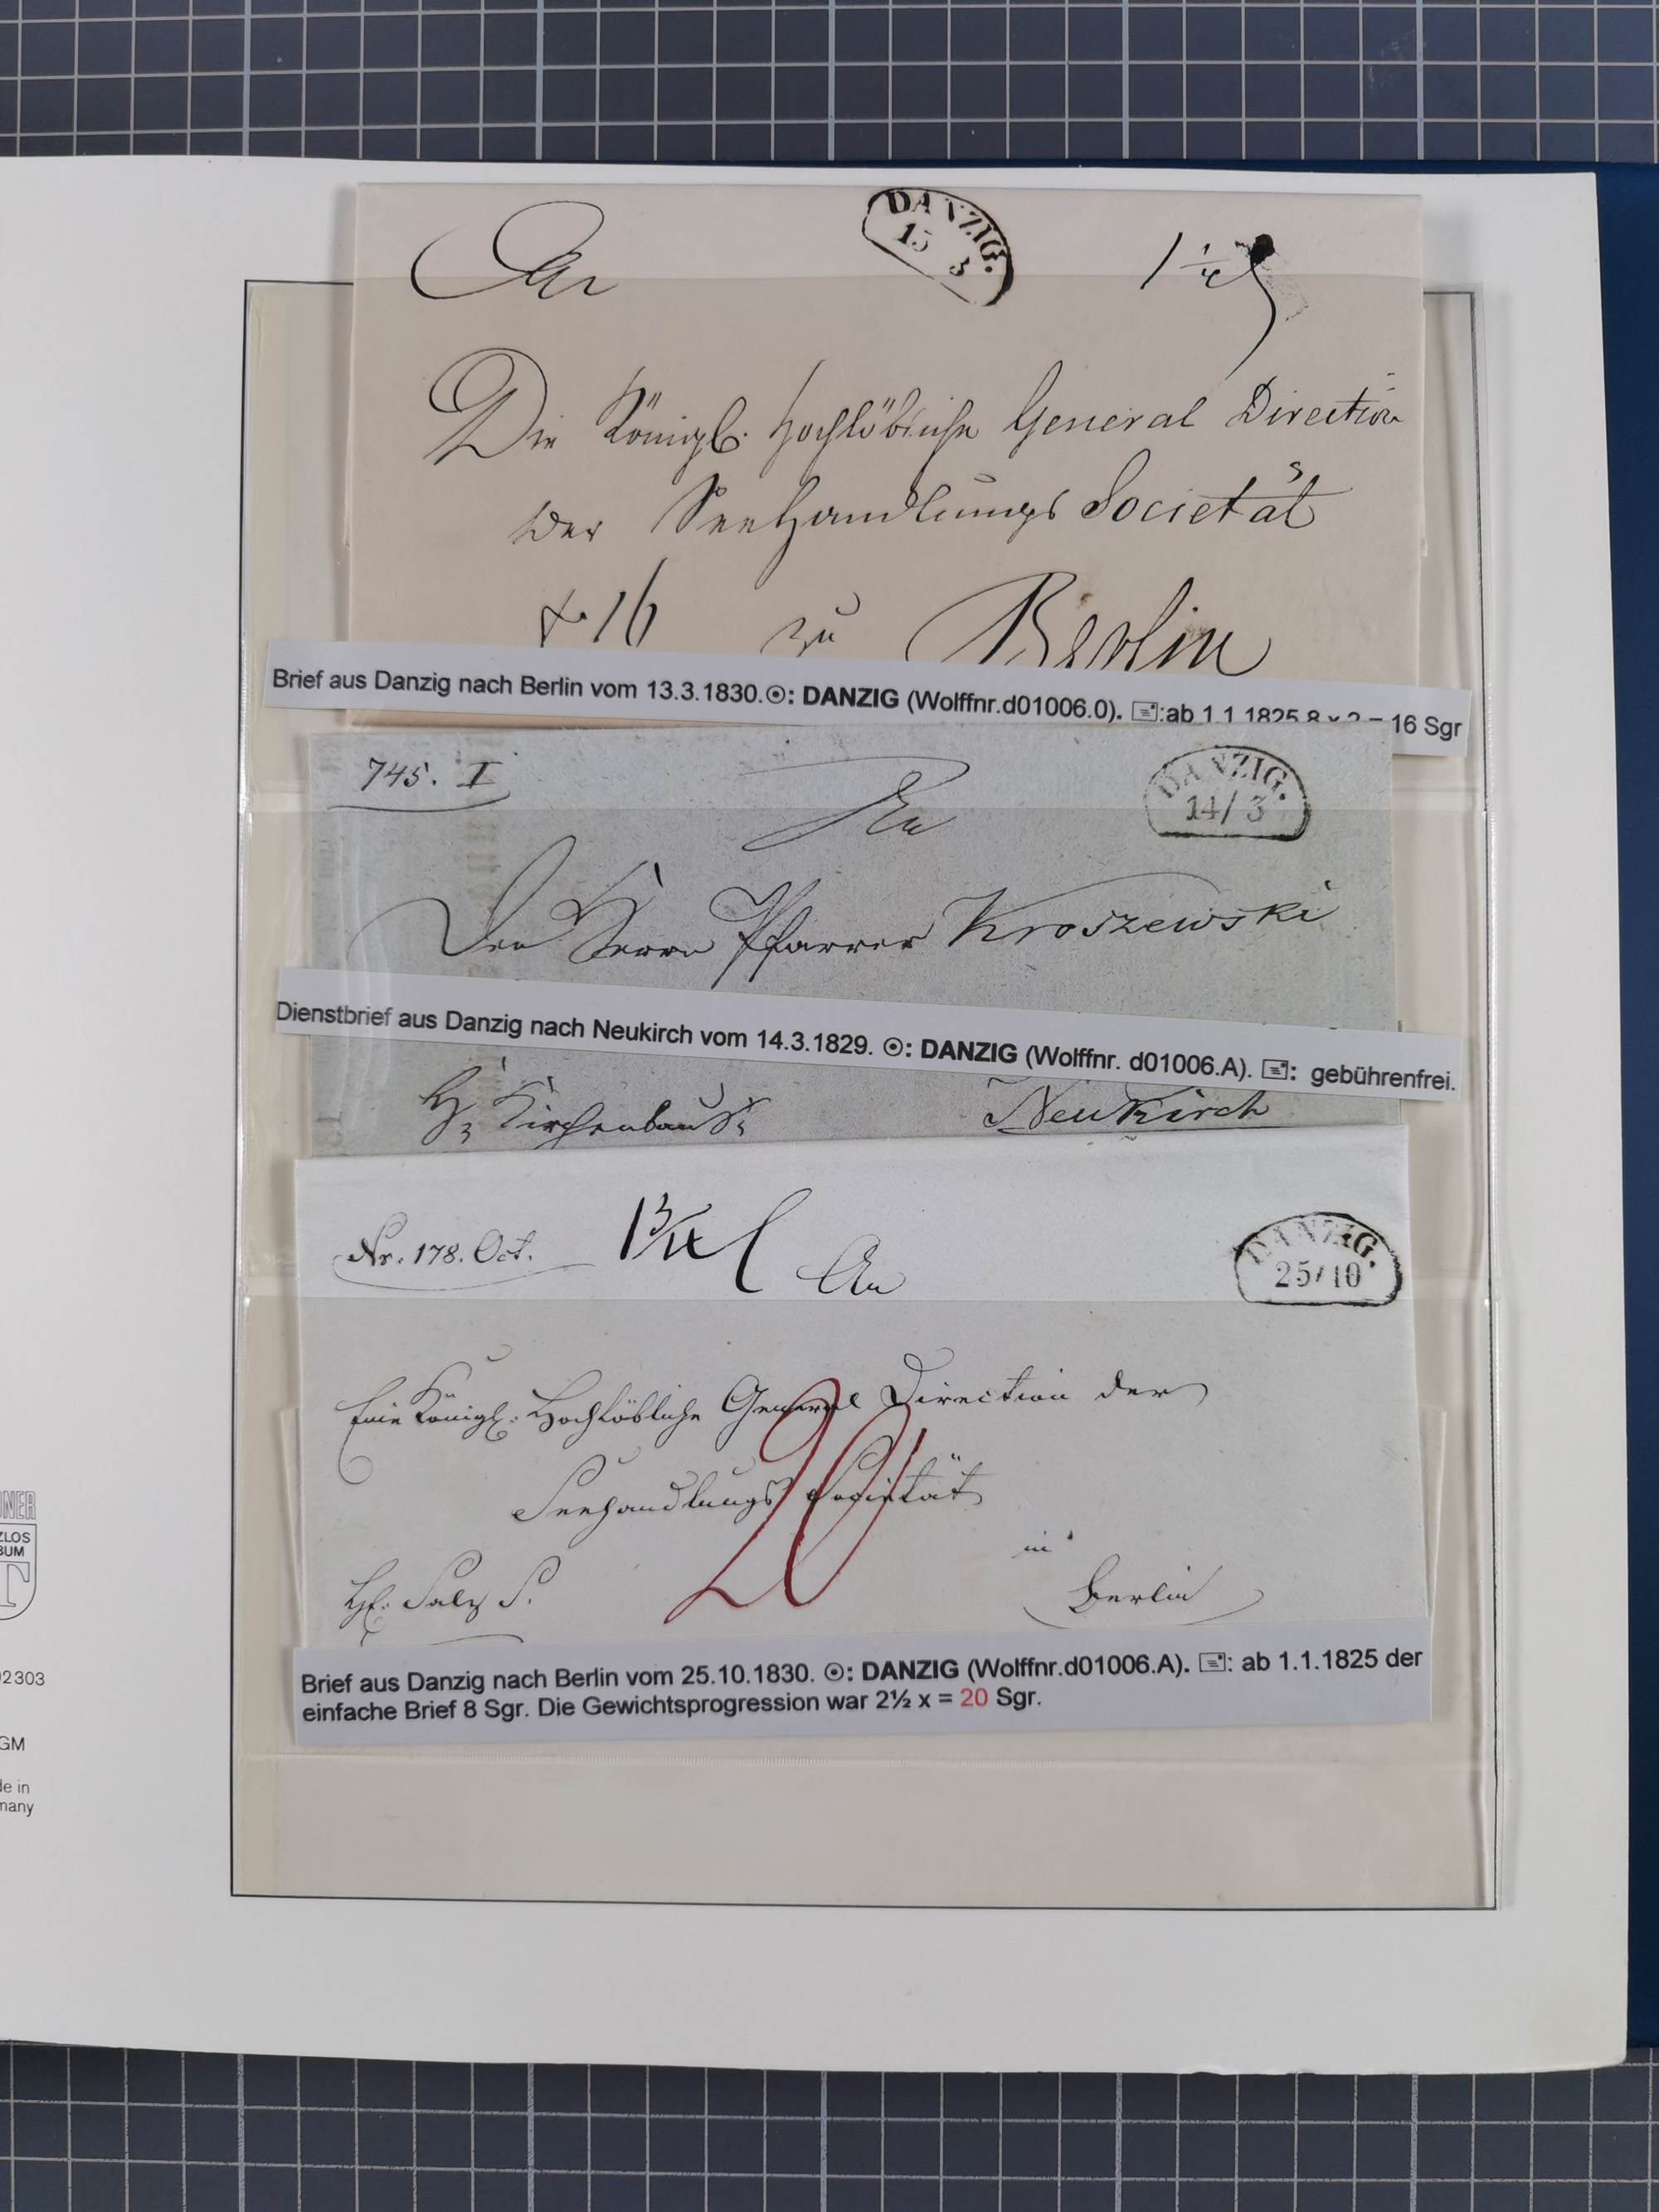 An
DANZIG.
15 3
1 1/4
Die Königl. Hochlöbliche General Direction
der Seehandlungs Societät
16 zu Berlin
Brief aus Danzig nach Berlin vom 13.3.1830.☉: DANZIG (Wolffnr.d01006.0). :ab 1.1.1825 8 x 2 = 16 Sgr
745. I
An
DANZIG.
14/3
Den Herrn Pfarrer Kroszewski
Dienstbrief aus Danzig nach Neukirch vom 14.3.1829. ☉: DANZIG (Wolffnr. d01006.A). : gebührenfrei.
Neukirch
Nr. 178. Oct.
An
DANZIG.
25/10
Eine Königl: Hochlöbliche General Direction der
Seehandlungs Societät
20
in
Berlin
Brief aus Danzig nach Berlin vom 25.10.1830. ☉: DANZIG (Wolffnr.d01006.A). : ab 1.1.1825 der
einfache Brief 8 Sgr. Die Gewichtsprogression war 2½ x = 20 Sgr.
NER
ZLOS
BUM
T
02303
GM
de in
many